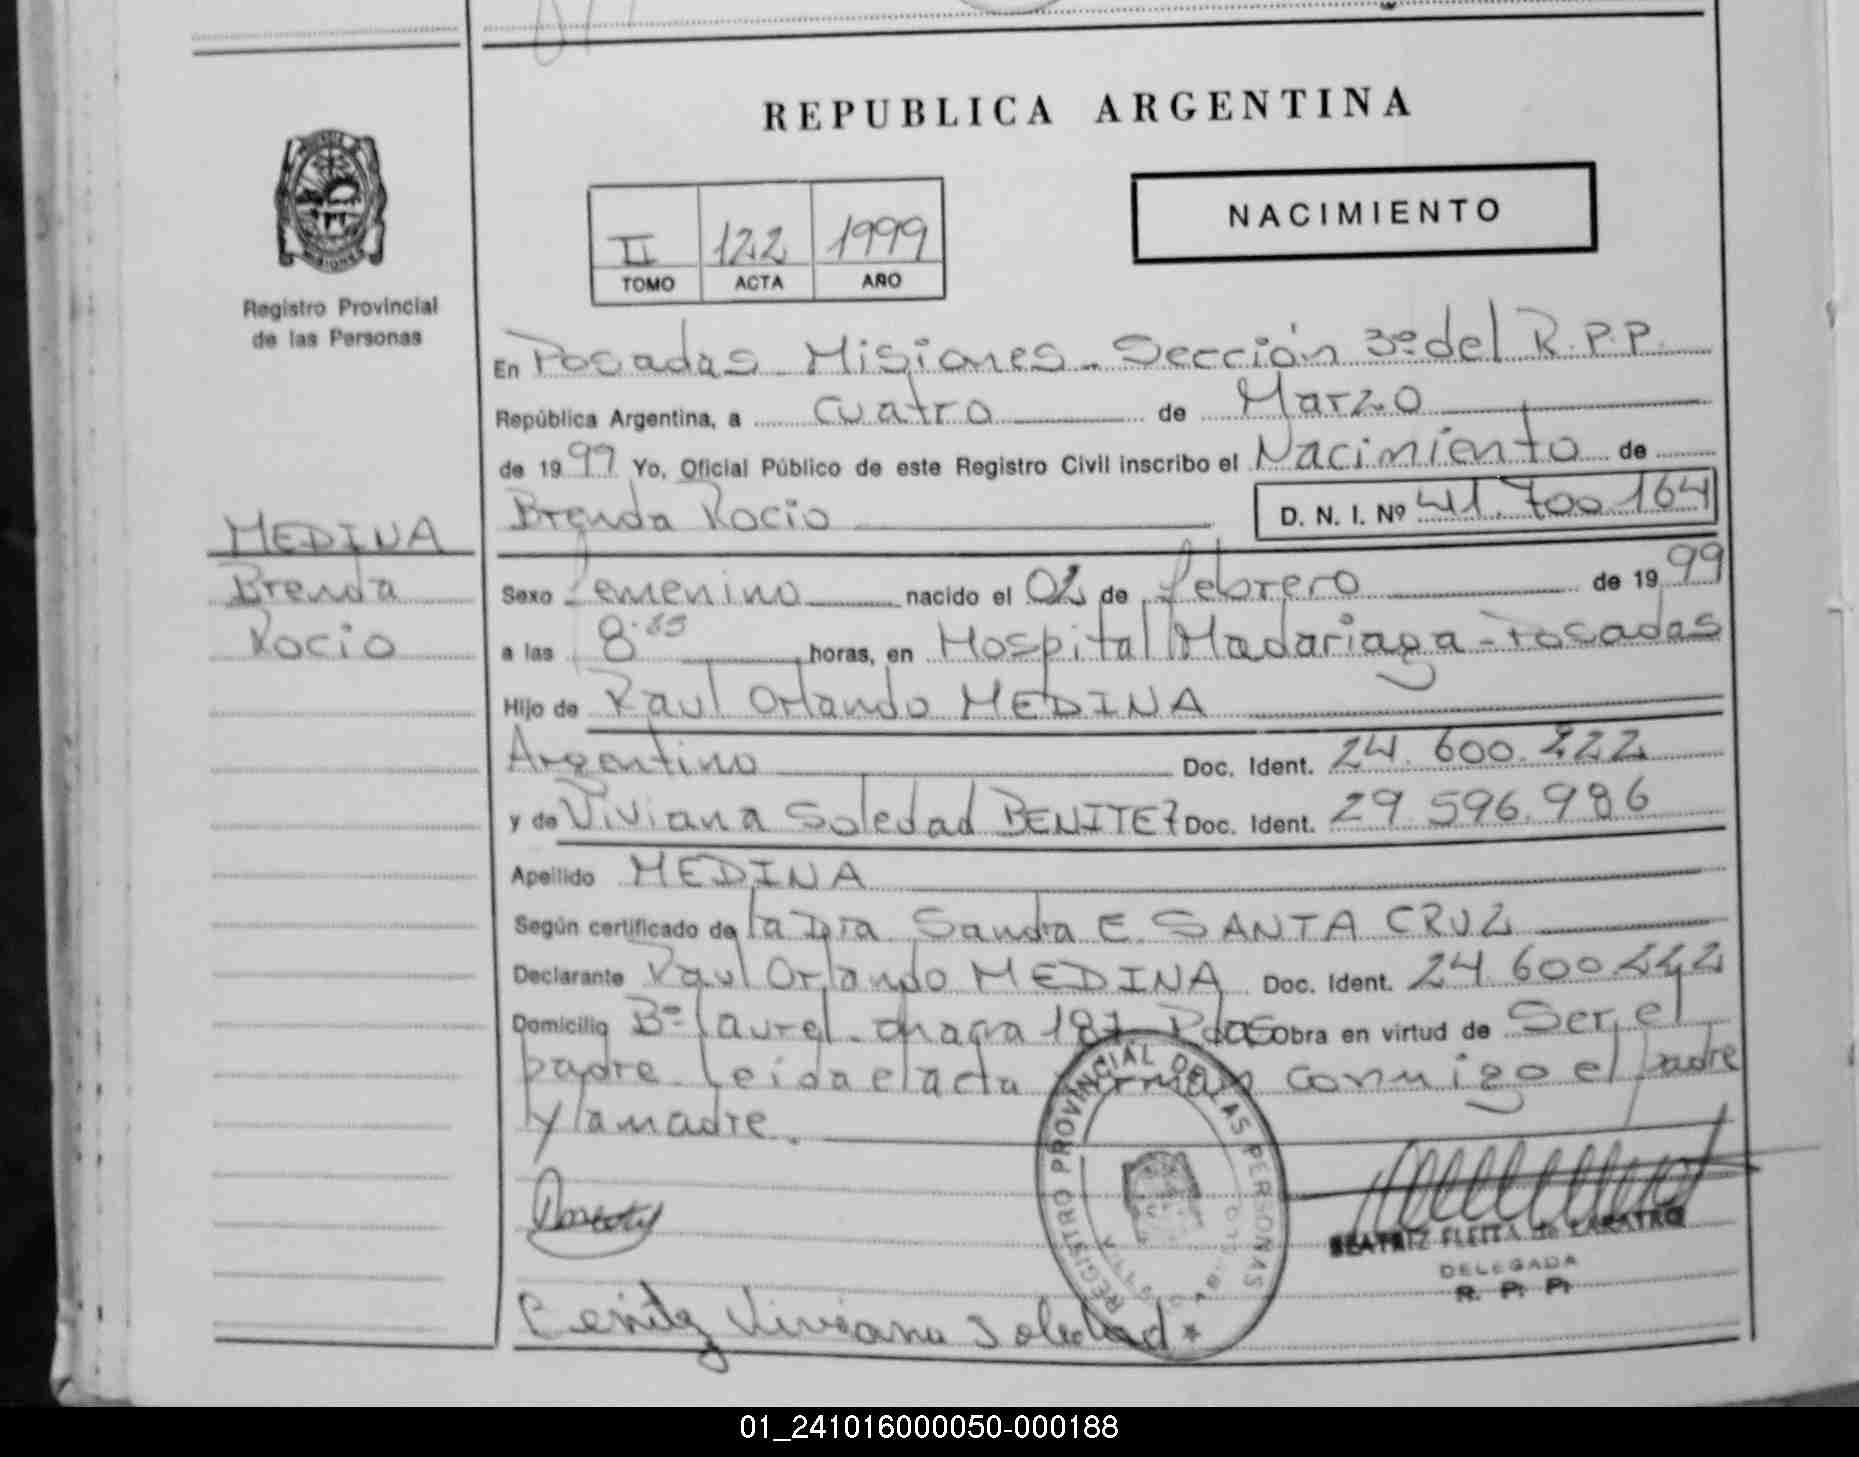 REPUBLICA ARGENTINA
NACIMIENTO
II 122 1999
TOMO ACTA AÑO
Registro Provincial
de las Personas
En Posadas Misiones - Sección 3º del R.P.P.
República Argentina, a cuatro de Marzo
de 1999 Yo, Oficial Público de este Registro Civil inscribo el Nacimiento de
Brenda Rocio D. N. I. Nº 41.700.164
MEDINA
Brenda
Rocio
Sexo femenino nacido el 02 de febrero de 1999
a las 8 horas, en Hospital Madariaga - Posadas
Hijo de Raul Orlando MEDINA
Argentino Doc. Ident. 24.600.222
y de Viviana Soledad BENITEZ Doc. Ident. 29.596.986
Apellido MEDINA
Según certificado de la Dra Sandra E. SANTA CRUZ
Declarante Raul Orlando MEDINA Doc. Ident. 24.600.222
Domicilio Bº laurel - chacra 187 Pdas Obra en virtud de Ser el
padre Leida el acta firman conmigo el padre
y la madre.
REGISTRO PROVINCIAL DE LAS PERSONAS
BEATRIZ FLEITA de
DELEGADA
R. P. P.
Benitez Viviana Soledad
01_241016000050-000188